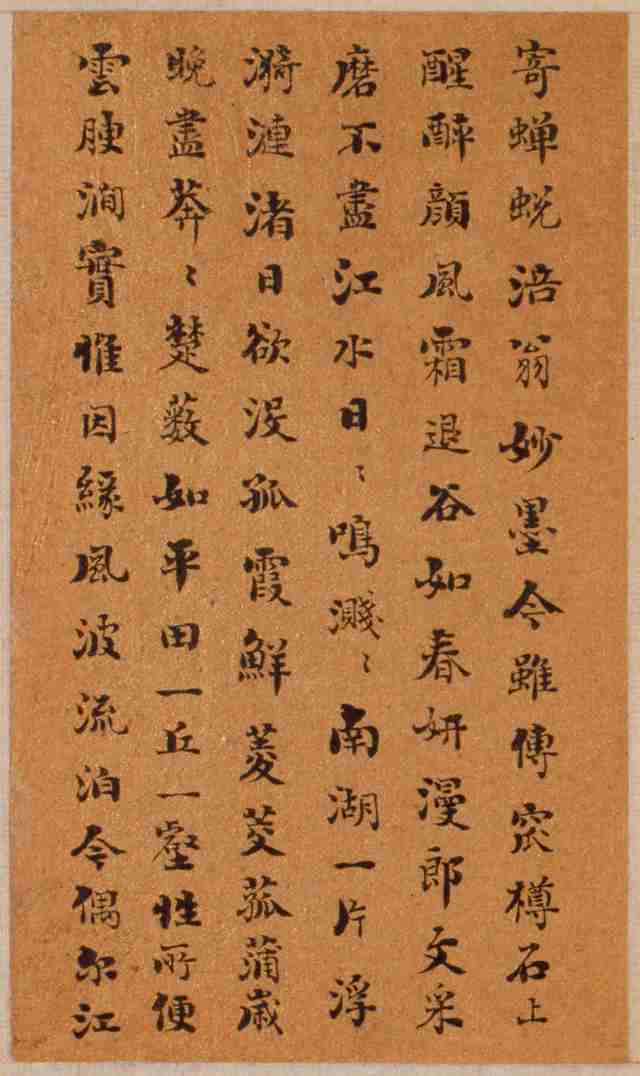 寄蝉蜕涪翁妙墨今雖傳窊樽石上
醒醉顔風霜退谷如春妍漫郎文采
磨不盡江水日〻鳴濺〻南湖一片浮
漪漣渚日欲没孤霞鮮菱芰菰蒲歲
晚盡莽〻楚薮如平田一丘一壑性所便
雲腴澗實惟因緣風波流泊今偶尔江